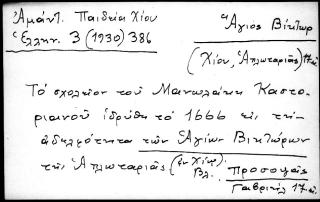 Ἀμάντ. Παιδεία Χίου
Ἑλλην. 3 (1930) 386
Ἅγιος Βίκτωρ
(Χίου, Ἀπλωταριᾶς) 17 αἰ.
Τὸ σχολεῖον τοῦ Μανωλάκη Καστο-
ριανοῦ ἱδρύθη τὸ 1666 εἰς τὴν
ἀδελφότητα τῶν Ἁγίων Βικτώρων
τῆς Ἀπλωταριᾶς (ἐν Χίῳ).
Βλ. Προσοψᾶς
Γαβριήλ 17 αἰ.